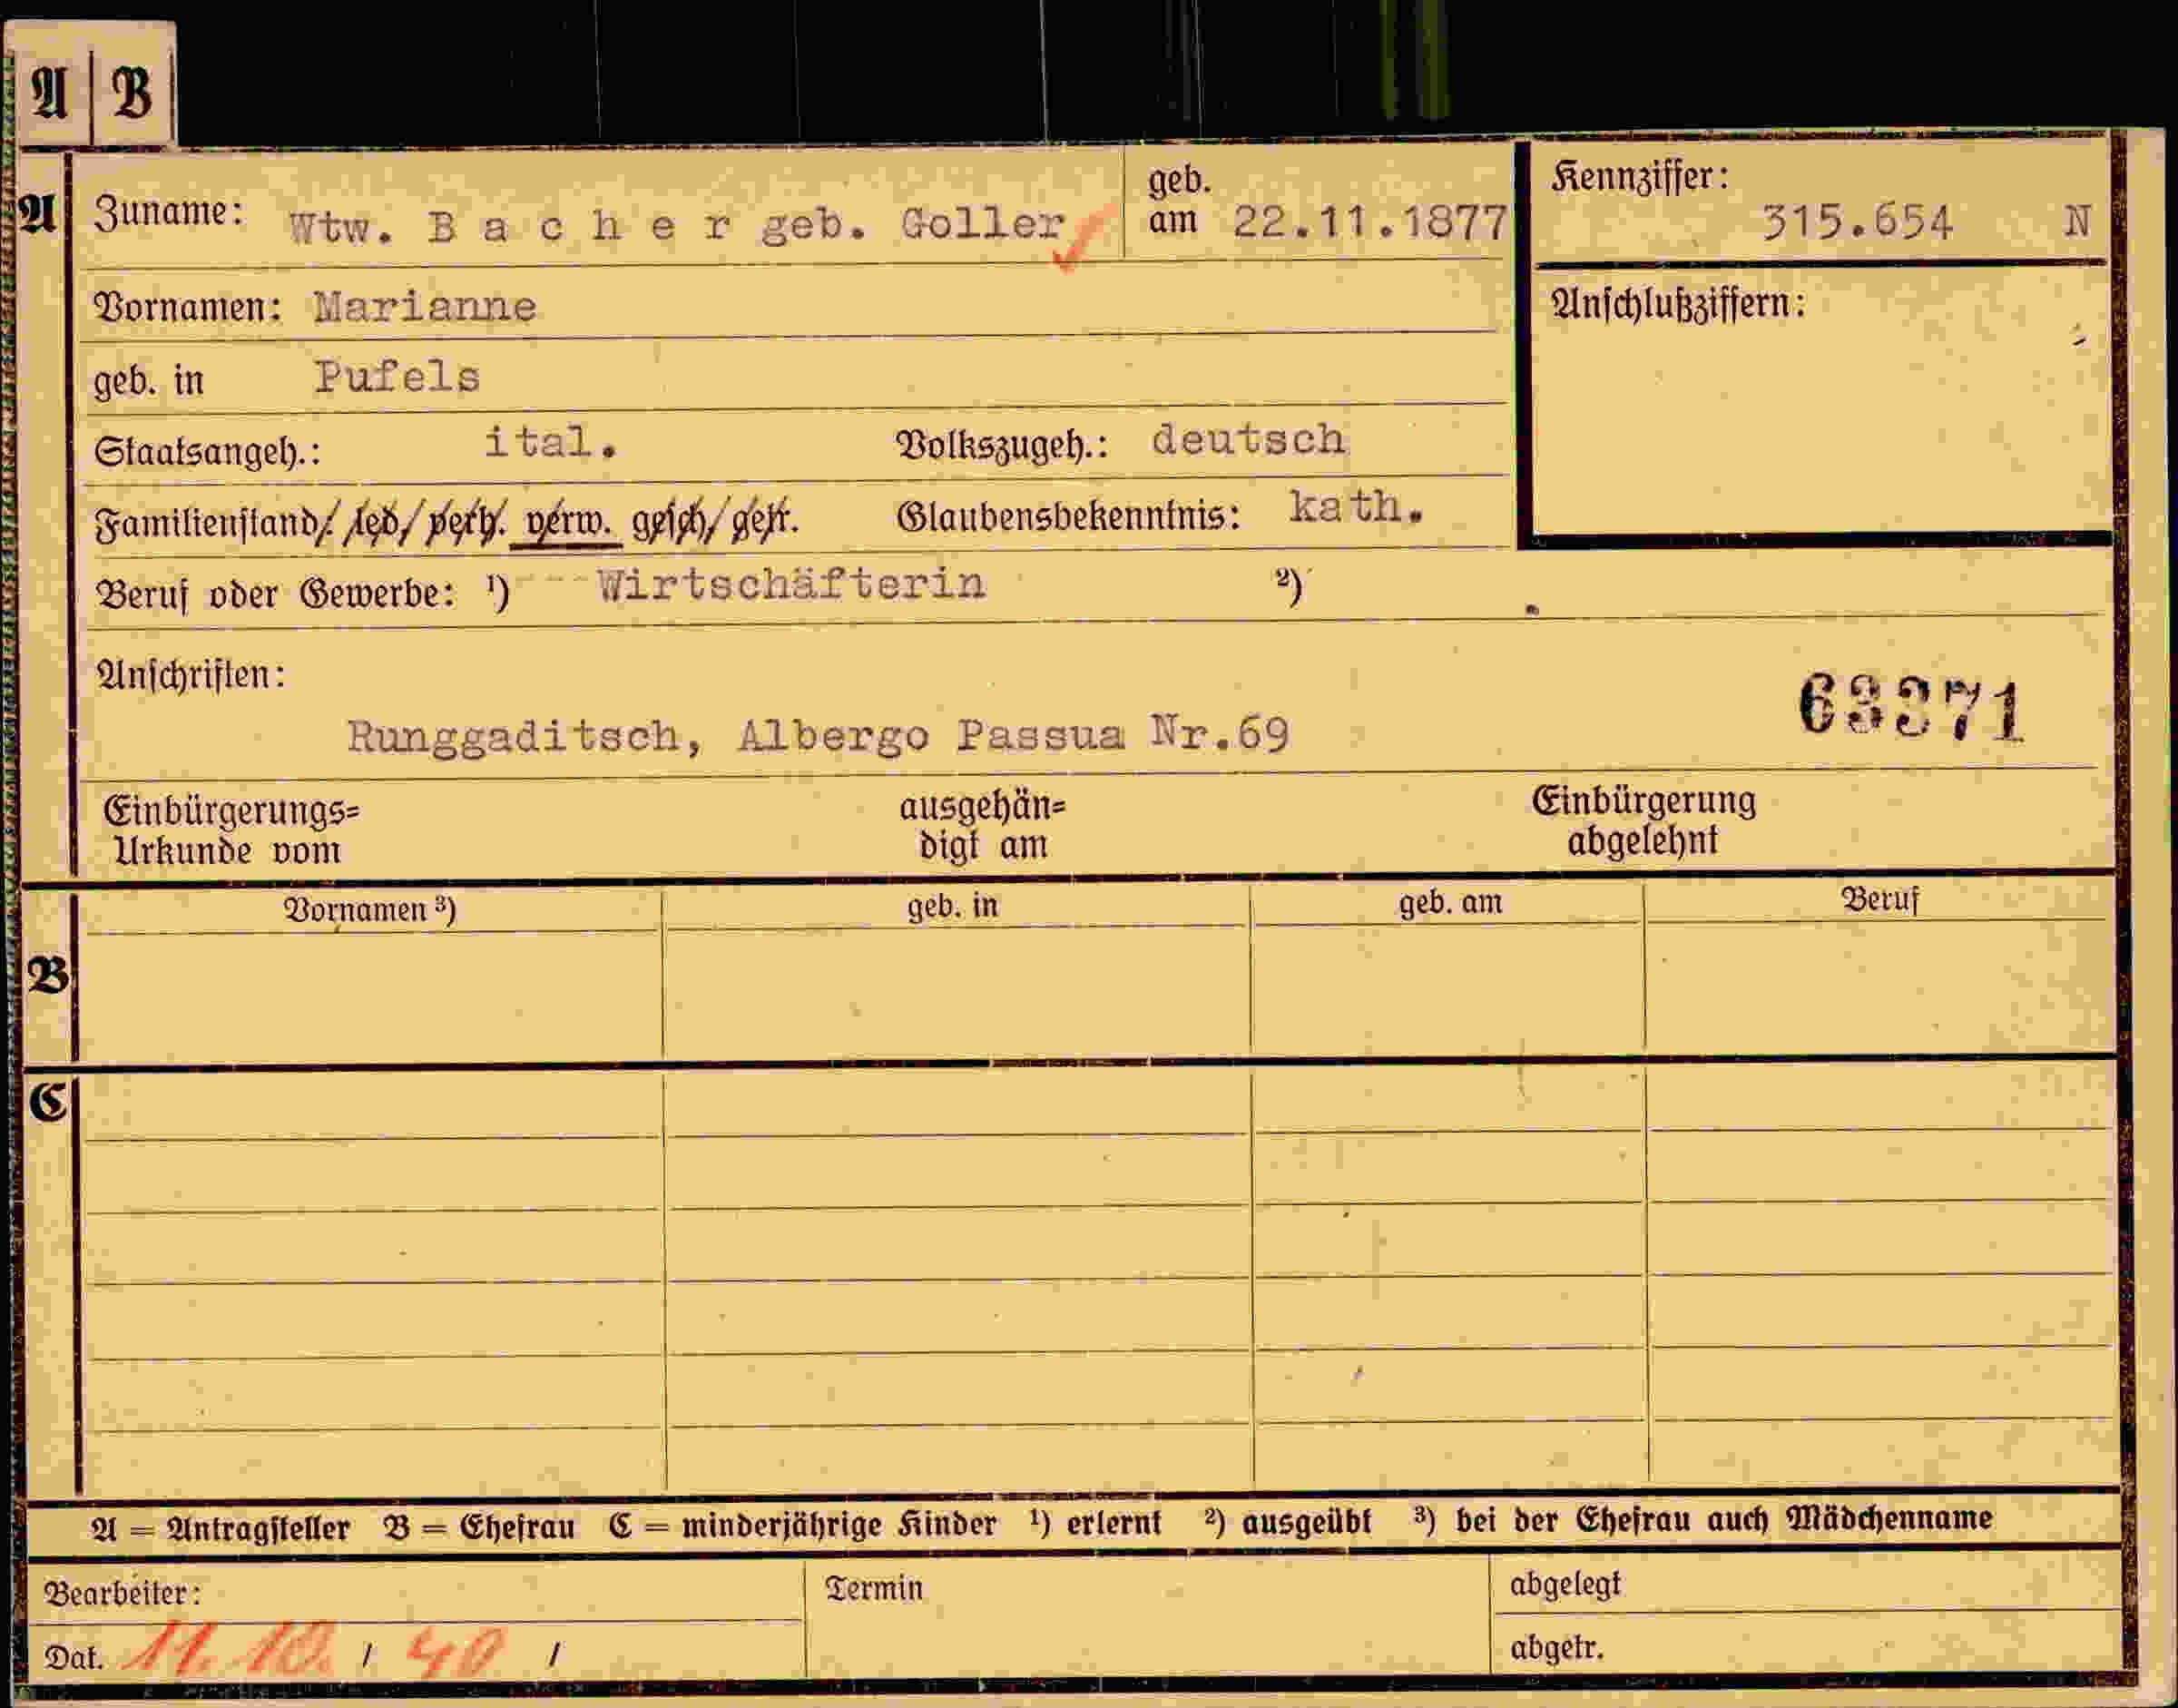 A B
A Zuname: Wtw. B a c h e r geb. Goller geb. am 22.11.1877 Kennziffer: 315.654 N
Vornamen: Marianne Anschlußziffern:
geb. in Pufels
Staatsangeh.: ital. Volkszugeh.: deutsch
Familienstand: led. verh. verw. gesch. getr. Glaubensbekenntnis: kath.
Beruf oder Gewerbe: ¹) --Wirtschäfterin ²)
Anschriften:
63371
Runggaditsch, Albergo Passua Nr.69
Einbürgerungs= ausgehän= Einbürgerung
Urkunde vom digt am abgelehnt
Vornamen ³) geb. in geb. am Beruf
B
C
A = Antragsteller B = Ehefrau C = minderjährige Kinder ¹) erlernt ²) ausgeübt ³) bei der Ehefrau auch Mädchenname
Bearbeiter: Termin abgelegt
Dat. 11. 10. / 40 / abgetr.